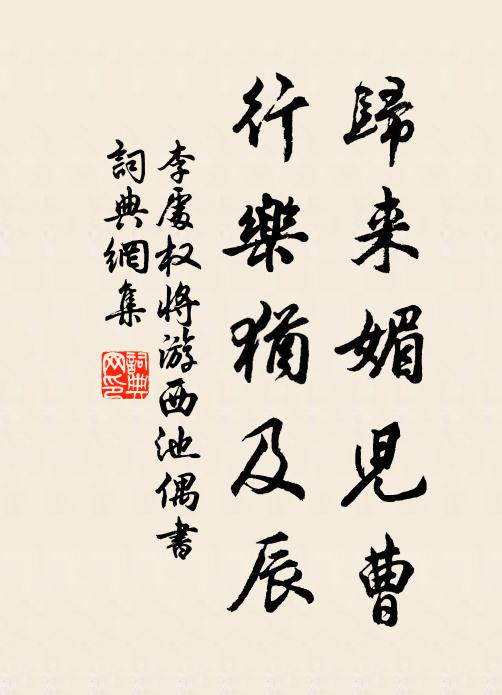 歸来媚児曹
行樂猶及辰
李處权将游西池偶書
詞典網集
詞典
网印